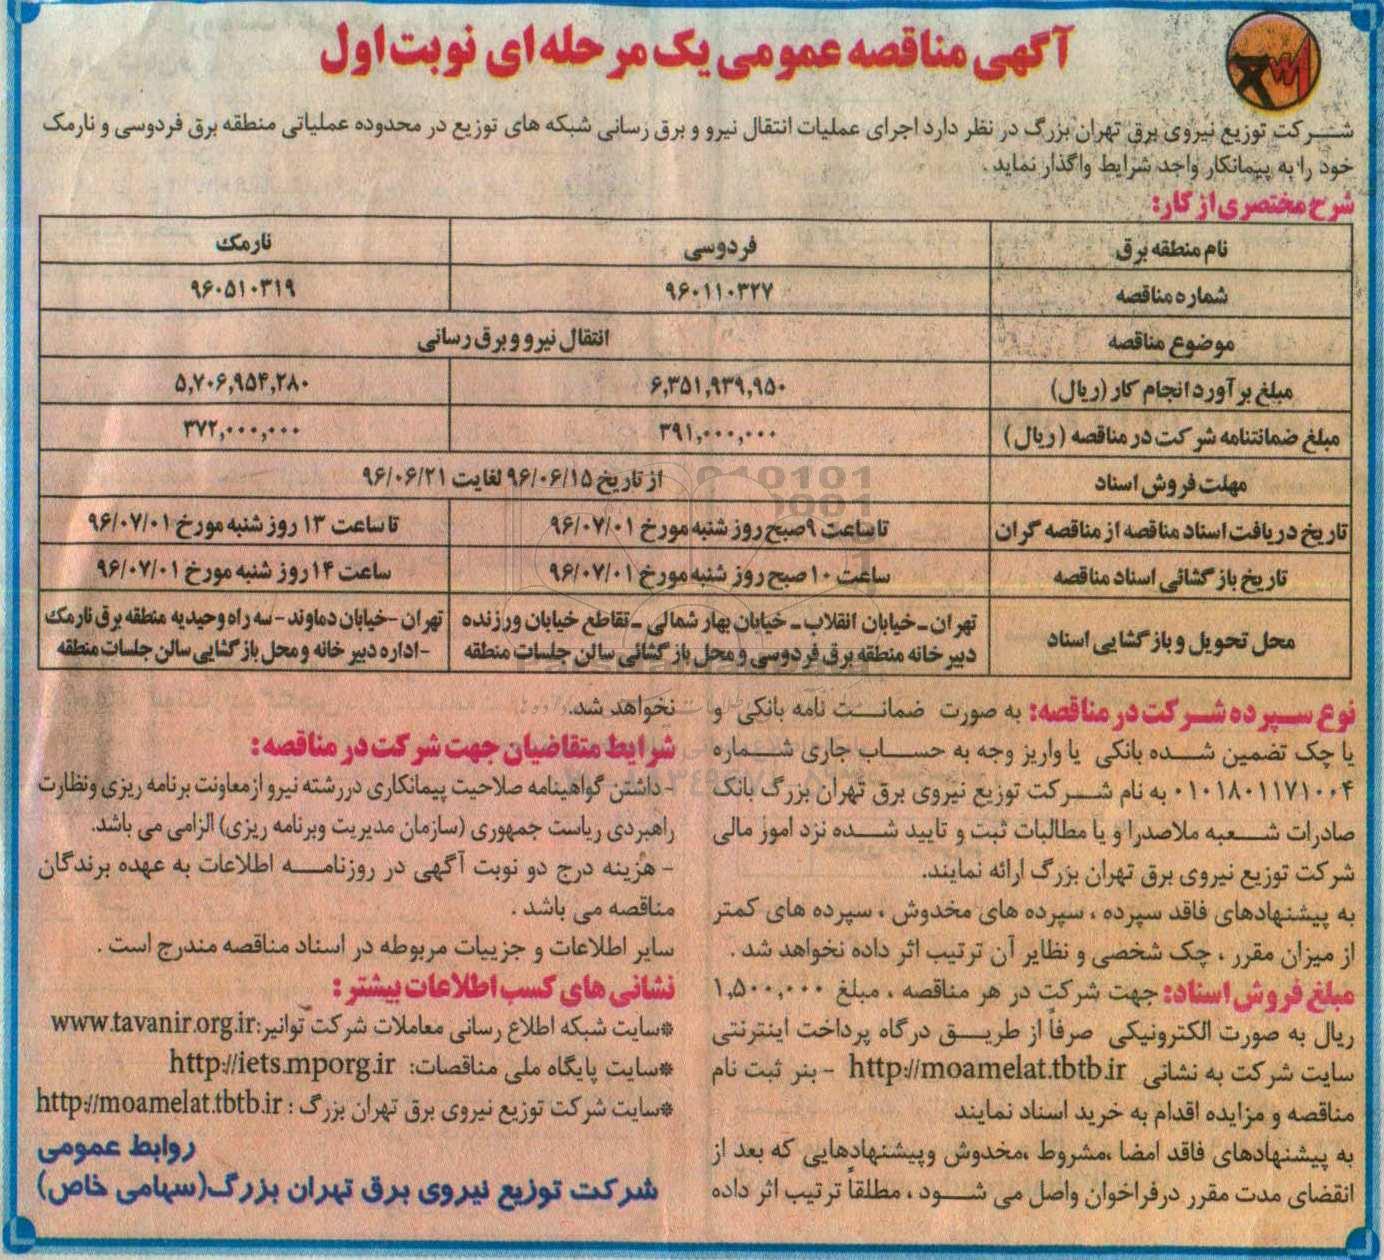 آگهی مناقصه عمومی یک مرحله ای نوبت اول
شرکت توزیع نیروی برق تهران بزرگ در نظر دارد اجرای عملیات انتقال نیرو و برق رسانی شبکه های توزیع در محدوده عملیاتی منطقه برق فردوسی و نارمک
خود را به پیمانکار واجد شرایط واگذار نماید.
شرح مختصری از کار:
نام منطقه برق فردوسی نارمک
شماره مناقصه ۹۶۰۱۱۰۳۲۷ ۹۶۰۵۱۰۳۱۹
موضوع مناقصه انتقال نیرو و برق رسانی
مبلغ برآورد انجام کار (ریال) ۶,۳۵۱,۹۳۹,۹۵۰ ۵,۷۰۶,۹۵۴,۲۸۰
مبلغ ضمانتنامه شرکت در مناقصه (ریال) ۳۹۱,۰۰۰,۰۰۰ ۳۷۲,۰۰۰,۰۰۰
مهلت فروش اسناد از تاریخ ۹۶/۰۶/۱۵ لغایت ۹۶/۰۶/۲۱
تاریخ دریافت اسناد مناقصه از مناقصه گران تا ساعت ۹ صبح روز شنبه مورخ ۹۶/۰۷/۰۱ تا ساعت ۱۳ روز شنبه مورخ ۹۶/۰۷/۰۱
تاریخ بازگشائی اسناد مناقصه ساعت ۱۰ صبح روز شنبه مورخ ۹۶/۰۷/۰۱ ساعت ۱۴ روز شنبه مورخ ۹۶/۰۷/۰۱
محل تحویل و بازگشایی اسناد
تهران_خیابان انقلاب_ خیابان بهار شمالی _تقاطع خیابان ورزنده
دبیرخانه منطقه برق فردوسی و محل بازگشائی سالن جلسات منطقه
تهران-خیابان دماوند-سه راه وحیدیه منطقه برق نارمک
-اداره دبیر خانه و محل بازگشایی سالن جلسات منطقه
نوع سپرده شرکت در مناقصه: به صورت ضمانت نامه بانکی و
یا چک تضمین شده بانکی یا واریز وجه به حساب جاری شماره
۰۱۰۱۸۰۱۱۷۱۰۰۴ به نام شرکت توزیع نیروی برق تهران بزرگ بانک
صادرات شعبه ملاصدرا و یا مطالبات ثبت و تایید شده نزد امور مالی
شرکت توزیع نیروی برق تهران بزرگ ارائه نمایند.
به پیشنهادهای فاقد سپرده ، سپرده های مخدوش ، سپرده های کمتر
از میزان مقرر ، چک شخصی و نظایر آن ترتیب اثر داده نخواهد شد .
مبلغ فروش اسناد: جهت شرکت در هر مناقصه ، مبلغ ۱,۵۰۰,۰۰۰
ریال به صورت الکترونیکی صرفاً از طریق درگاه پرداخت اینترنتی
سایت شرکت به نشانی http://moamelat.tbtb.ir -بنر ثبت نام
مناقصه و مزایده اقدام به خرید اسناد نمایند
به پیشنهادهای فاقد امضا ،مشروط ،مخدوش وپیشنهادهایی که بعد از
انقضای مدت مقرر درفراخوان واصل می شود ، مطلقاً ترتیب اثر داده
نخواهد شد.
شرایط متقاضیان جهت شرکت در مناقصه:
-داشتن گواهینامه صلاحیت پیمانکاری دررشته نیرو ازمعاونت برنامه ریزی ونظارت
راهبردی ریاست جمهوری (سازمان مدیریت وبرنامه ریزی) الزامی می باشد.
- هزینه درج دو نوبت آگهی در روزنامه اطلاعات به عهده برندگان
مناقصه می باشد .
سایر اطلاعات و جزییات مربوطه در اسناد مناقصه مندرج است .
نشانی های کسب اطلاعات بیشتر :
*سایت شبکه اطلاع رسانی معاملات شرکت توانیر:www.tavanir.org.ir
*سایت پایگاه ملی مناقصات: http://iets.mporg.ir
*سایت شرکت توزیع نیروی برق تهران بزرگ : http://moamelat.tbtb.ir
روابط عمومی
شرکت توزیع نیروی برق تهران بزرگ(سهامی خاص)